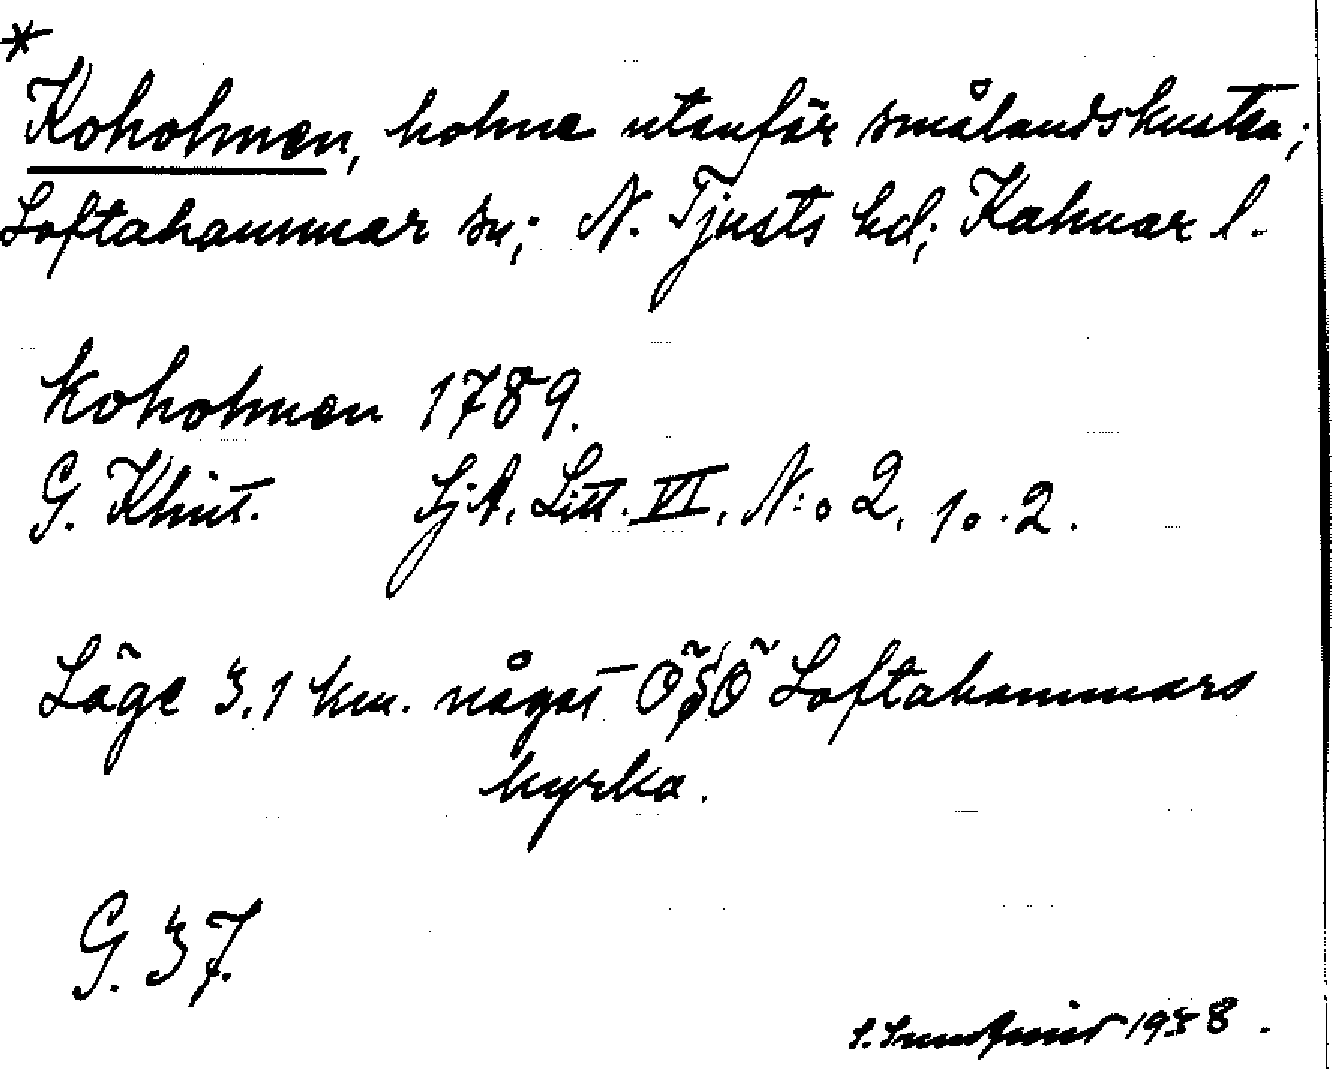 *
Koholmen, holme utanför smålandskusten;
Loftahammar sn; N. Tjusts hd; Kalmar l.
Koholmen 1789.
G. Klint. SjA. Litt. VI. N:o 2. 1o. 2.
Läge 3,1 km. något ÖSÖ Loftahammars
kyrka.
G. 37.
1938.